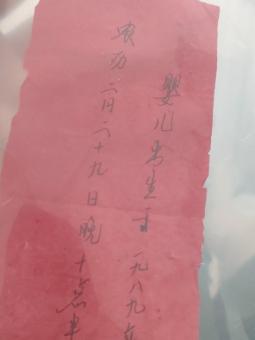 婴儿出生于一九八九年
农历二月二十九日晚十点半